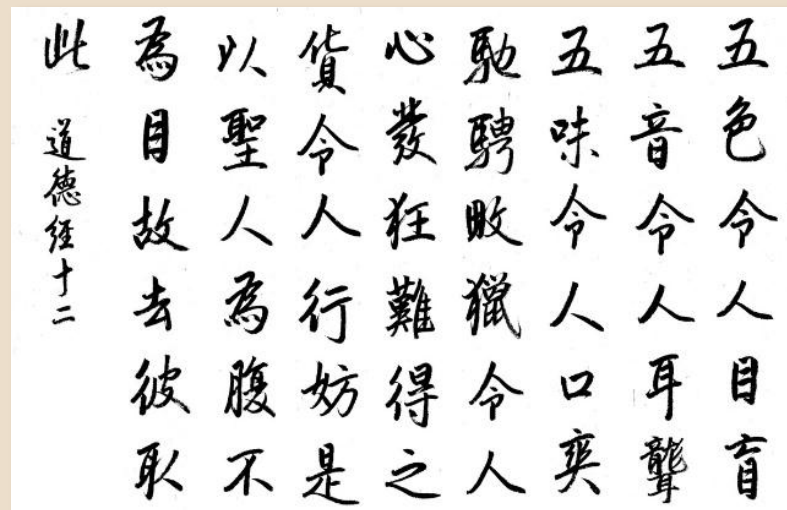 五色令人目盲
五音令人耳聾
五味令人口爽
馳騁畋獵令人
心發狂難得之
貨令人行妨是
以聖人為腹不
為目故去彼取
此
道德經十二